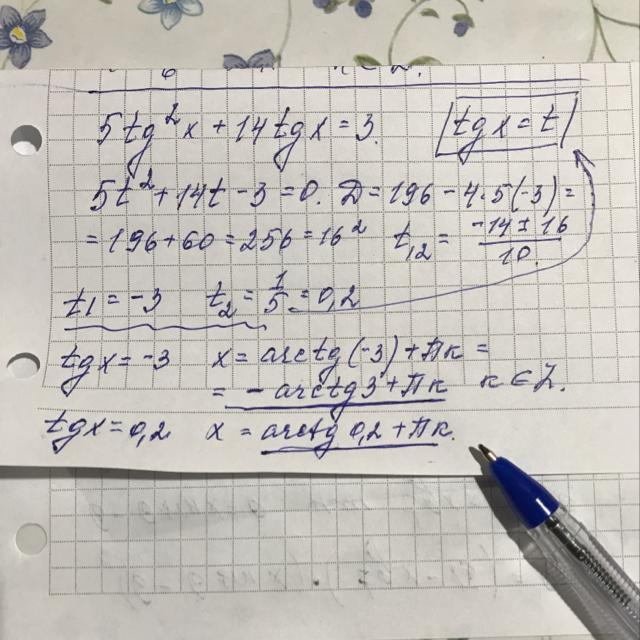 5tg²x + 14tgx = 3. |tgx = t|
5t² + 14t - 3 = 0. D = 196 - 4·5(-3) =
= 196 + 60 = 256 = 16² t₁,₂ = (-14 ± 16)/10.
t₁ = -3 t₂ = 1/5 = 0,2
tgx = -3 x = arctg(-3) + πк =
= - arctg3 + πк к ∈ Z.
tgx = 0,2 x = arctg 0,2 + πк.